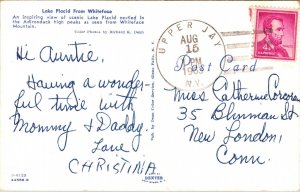 Lake Placid From Whiteface
An inspiring view of scenic Lake Placid nestled in
the Adirondack high peaks as seen from Whiteface
Mountain.
Color Photos by Richard K. Dean
Hi Auntie,
Having a wonder-
ful time with
Mommy & Daddy.
Love
CHRISTINA
DEXTER
UPPER JAY
AUG
15
PM
N.Y.
Post Card
Miss Catherine Corcoran
35 Blinman St
New London,
Conn.